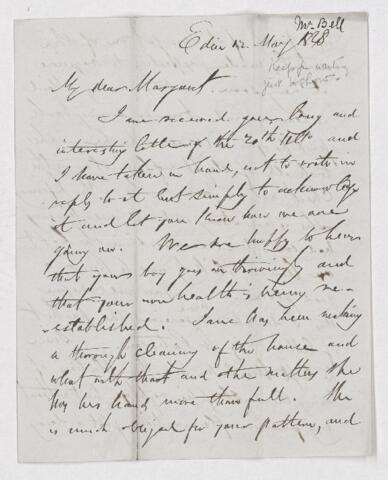 Mr Bell
Edinr 12 May 1848
My dear Margaret
I have received your long and
interesting letter of the 20th ulto and
I have taken in hand, not to write in
reply to it but simply to acknowledge
it and let you know how we are
going on. We are happy to hear
that your boy goes on thrivingly and
that your own health is being re-
established. Jane has been making
a thorough cleaning of the house and
what with that and other matters she
has her hand more than full. She
is much obliged for your pattern, and